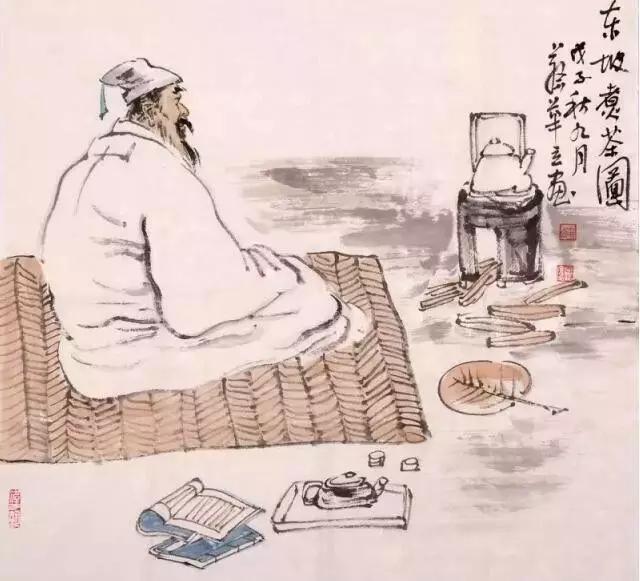 东坡煮茶圖
戊子秋九月
蔡華立画